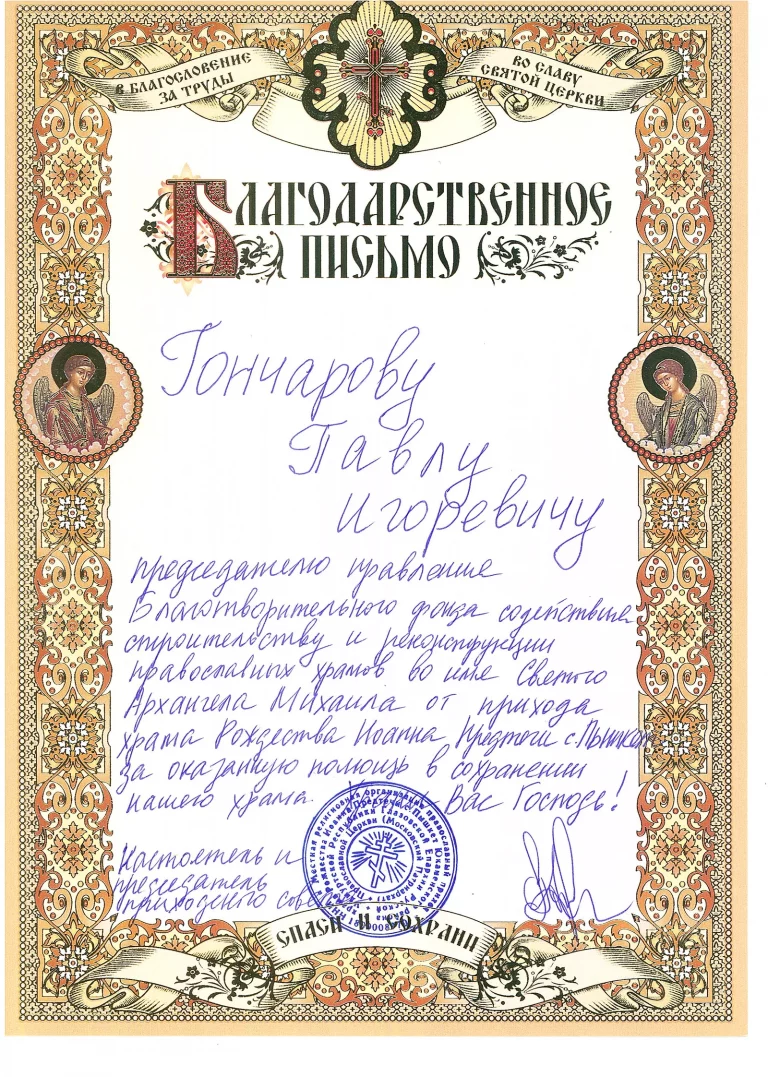 В БЛАГОСЛОВЕНИЕ
ЗА ТРУДЫ
ВО СЛАВУ
СВЯТОЙ ЦЕРКВИ
БЛАГОДАРСТВЕННОЕ
ПИСЬМО
Гончарову
Павлу
Игоревичу
председателю правления
Благотворительного фонда содействия
строительству и реконструкции
православных храмов во имя Святого
Архангела Михаила от прихода
храма Рождества Иоанна Предтечи с.
за оказанную помощь в сохранении
нашего храма. Вас Господь!
Настоятель и
председатель
приходского
Местная религиозная организация православный приход
Рождества Иоанна Предтечи с.Пышкет
Республики Глазовской Епархии
Православной Церкви (Московский Патриархат)
СПАСИ И СОХРАНИ